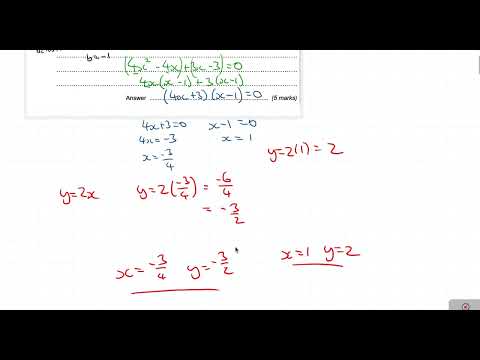 b=-1
(4x² - 4x) + (3x - 3) = 0
4x(x-1) + 3(x-1)
Answer (4x+3)(x-1) = 0 (5 marks)
4x+3=0 x-1=0
4x=-3 x=1
x=-3/4
y=2(1)=2
y=2x y=2(-3/4) = -6/4
= -3/2
x=-3/4 y=-3/2 x=1 y=2